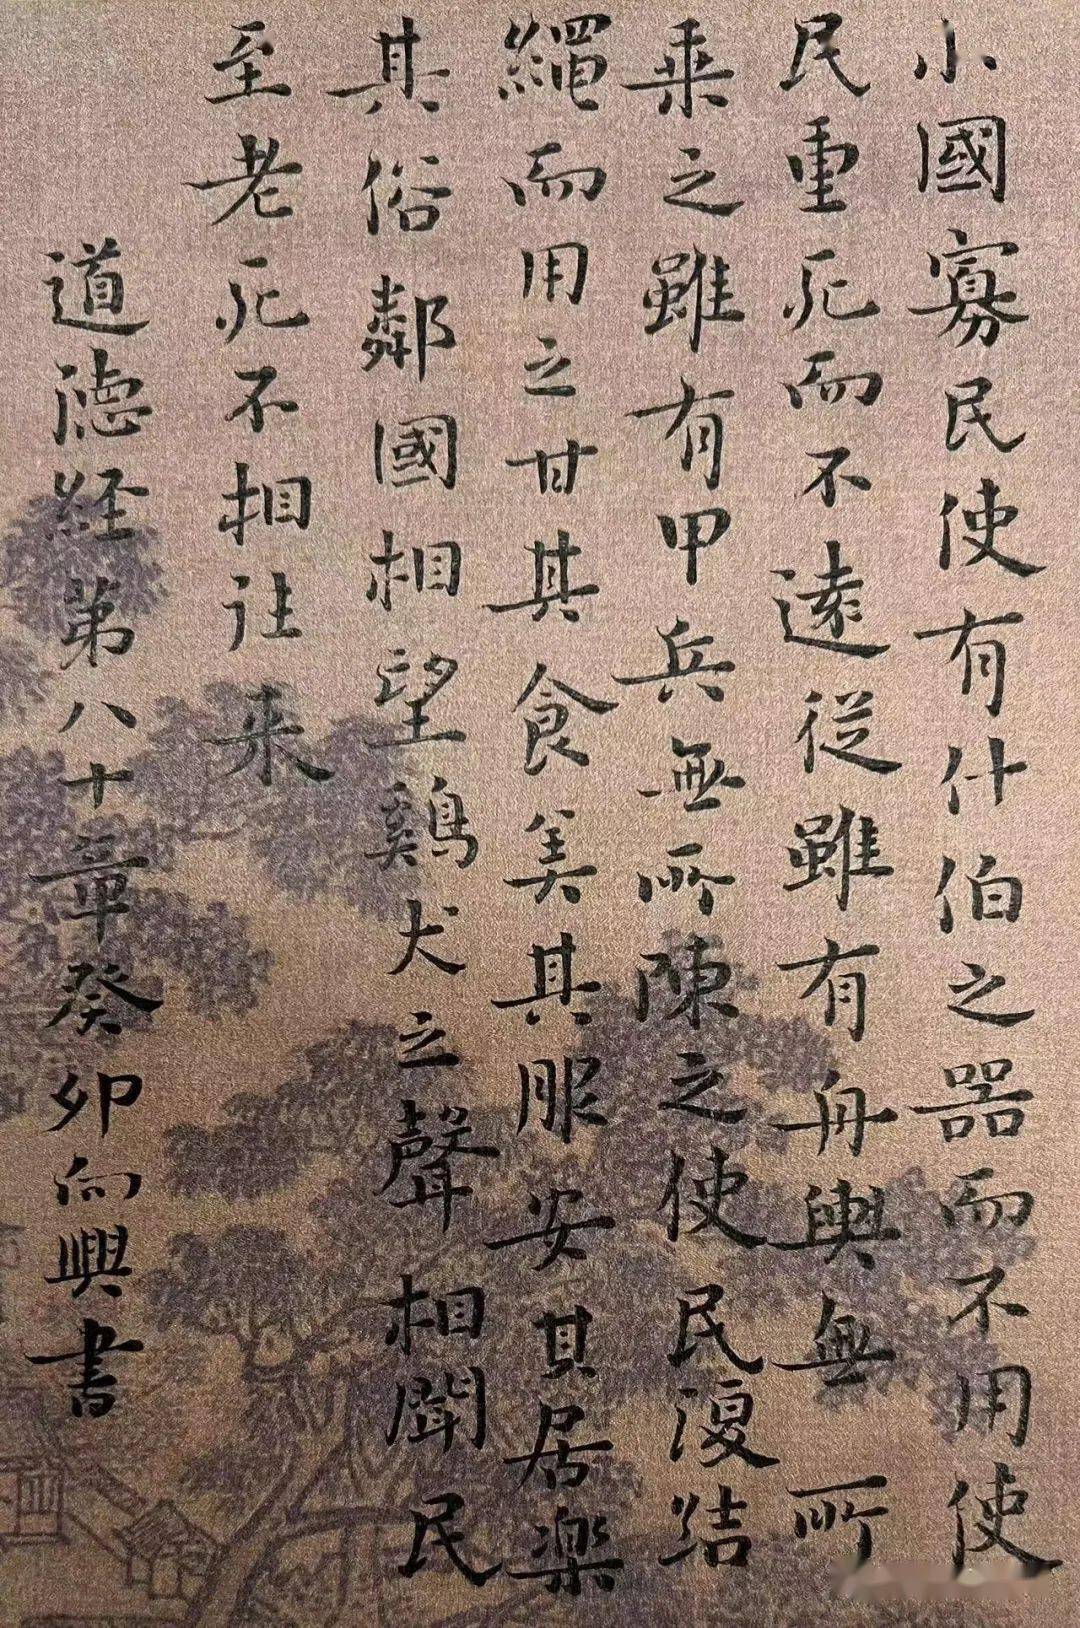 小國寡民使有什伯之器而不用使
民重死而不遠從雖有舟輿無所
乘之雖有甲兵無所陳之使民復結
繩而用之甘其食美其服安其居樂
其俗鄰國相望鷄犬之聲相聞民
至老死不相往来
道德經第八十章癸卯向興書